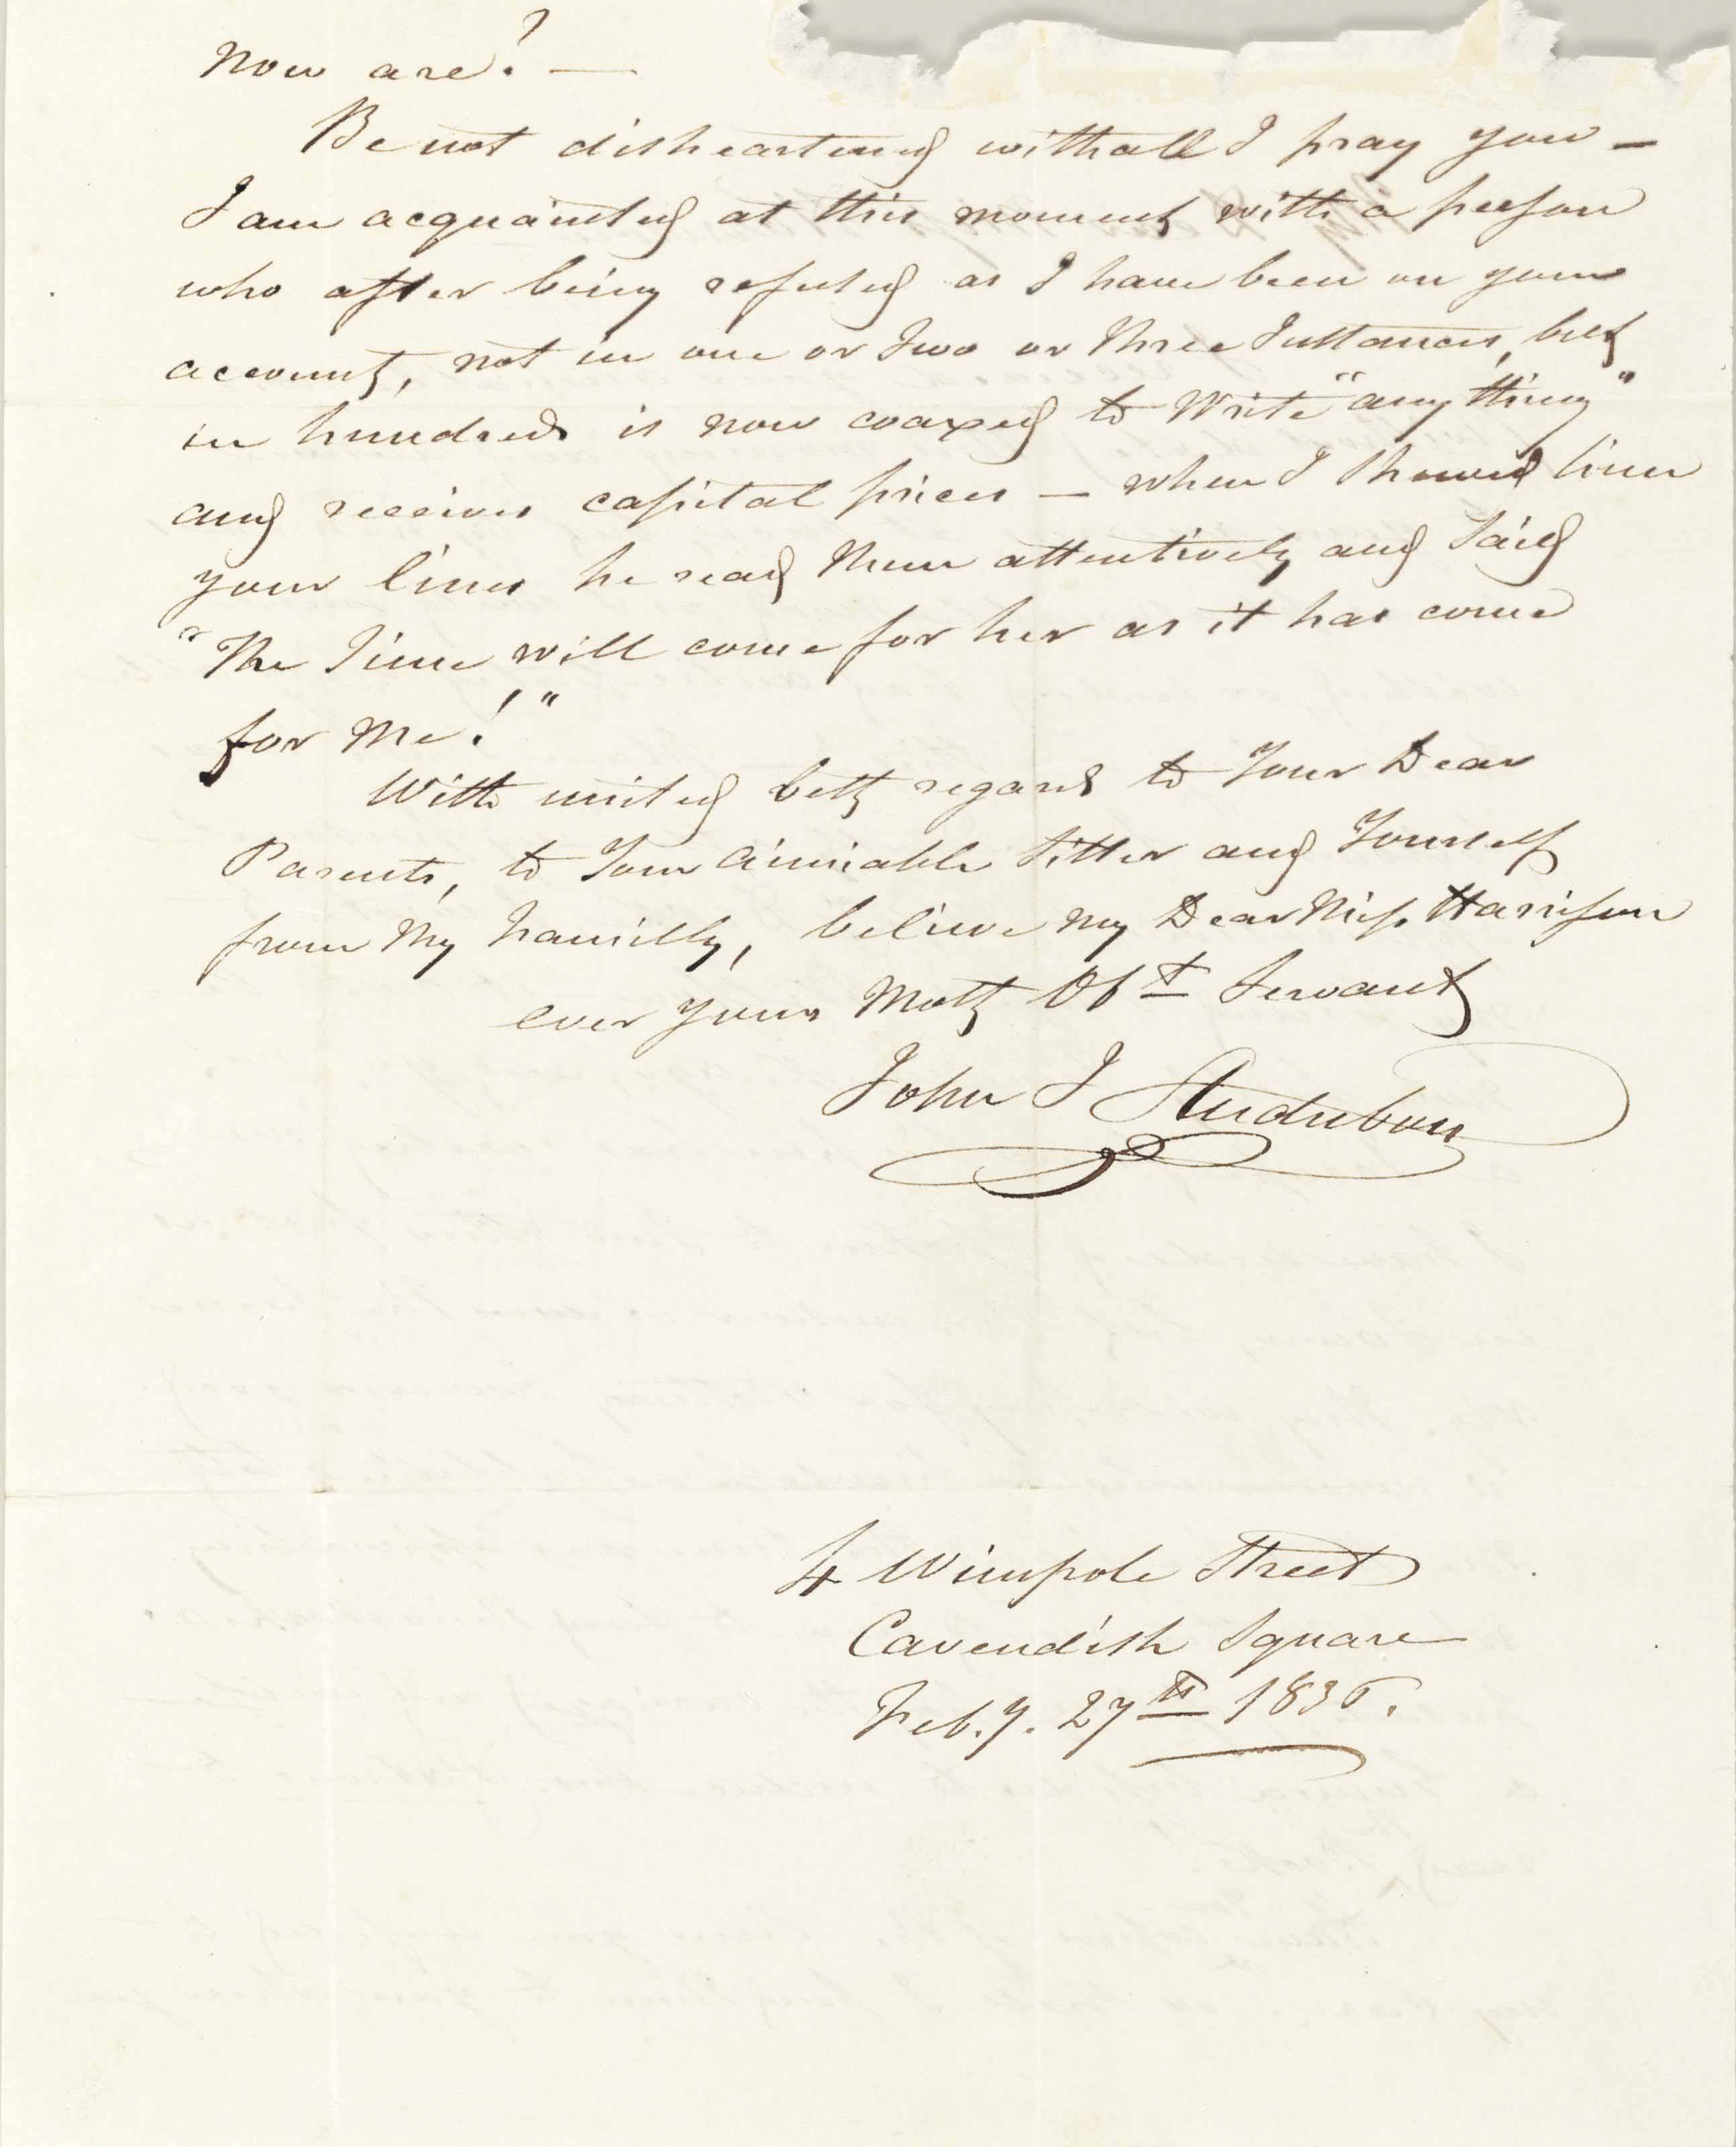 Now are? —
Be not disheartened withall I pray you —
I am acquainted at this moment with a person
who after being refused as I have been on your
account, not in one or Two or Three Instances, but
in hundreds is now coaxed to Write "any thing"
and receives capital prices — when I Showed him
your lines he read Them attentively and Said
"The Time will come for her as it has come
for Me!"
With united best regards to Your Dear
Parents, to Your Aimiable Sister and Yourself
from My Familly, believe my Dear Miss Harrison
ever yours Most Obt Servant
John J Audubon
4 Wimpole Street
Cavendish Square
Feb.y. 27th